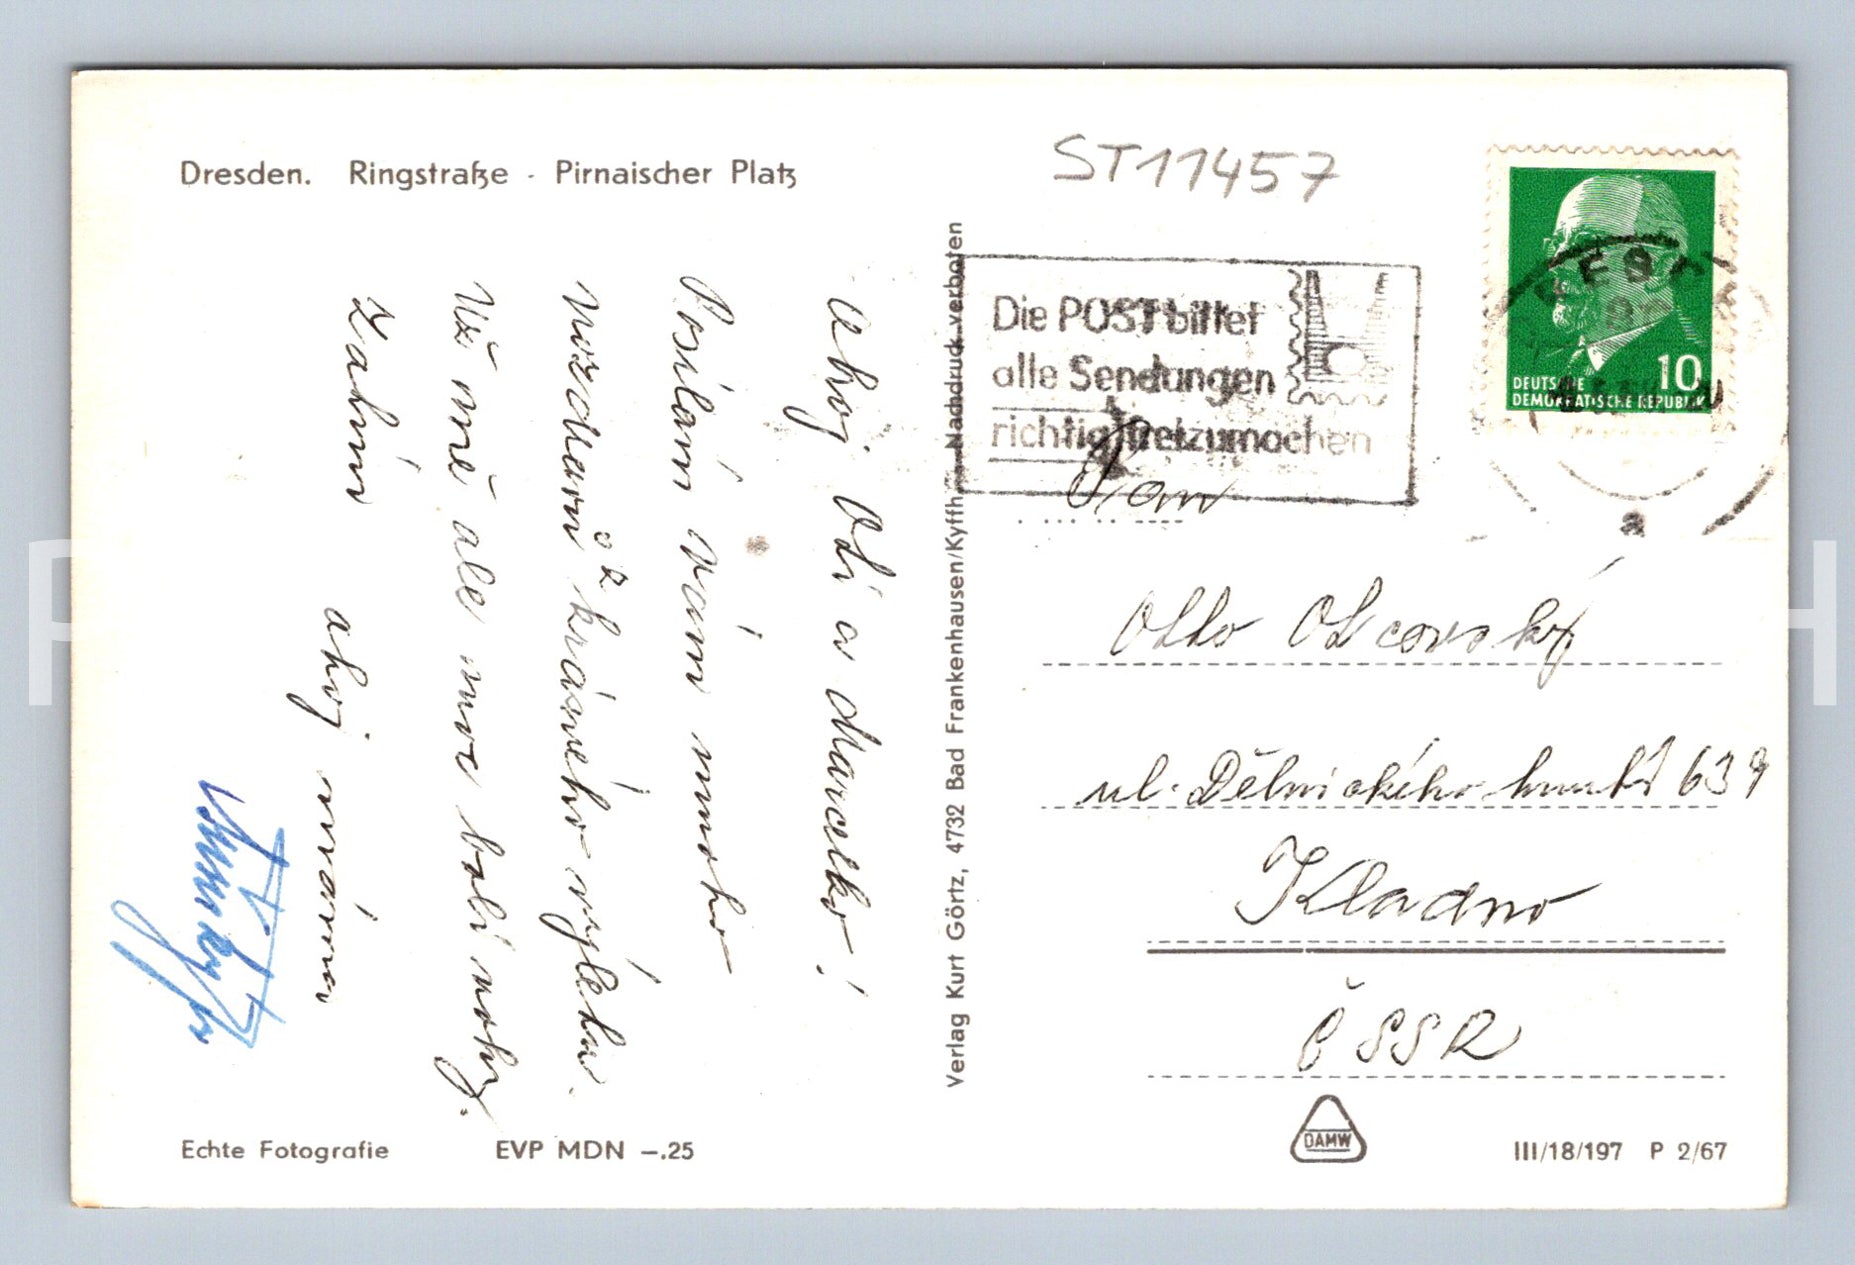 Dresden. Ringstraße - Pirnaischer Platz
ST11457
Die POST bittet
alle Sendungen
richtig freizumachen
DEUTSCHE
DEMOKRATISCHE REPUBLIK
10
a
Ahoj Oti a Marcelko!
Posílám vám mnoho
pozdravů z krásného výletu.
Už mě ale moc bolí nohy.
Zatím
ahoj
Verlag Kurt Görtz, 4732 Bad Frankenhausen/Kyffh. Nachdruck verboten
Pan
Otto
ul. Dělnického hnutí 639
Kladno
ČSSR
Echte Fotografie EVP MDN –.25
DAMW
III/18/197 P 2/67